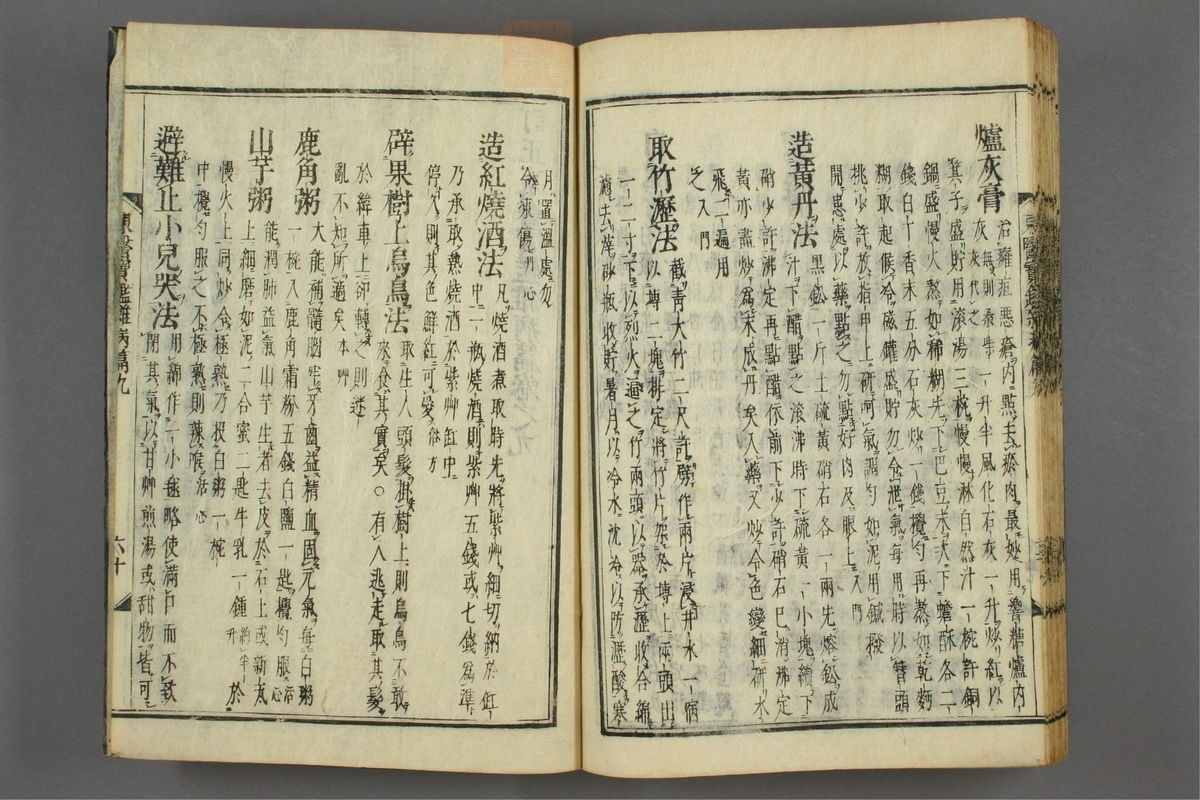 爐灰膏 治癰疽惡瘡內點去瘀肉最妙用響糖爐內
灰無則桑柴灰代之一升半風化石灰一升炒紅以
箕子盛貯用滾湯三椀慢慢淋自然汁一椀許銅
鍋盛慢火熬如稀糊先下巴豆末次下蟾酥各二
錢白丁香末五分石灰炒一錢攪勻再熬如乾麪
糊取起候冷磁罐盛貯勿令泄氣每用時以簪頭
桃少許放指甲上研呵氣調勻如泥用鍼撥
開患處以藥點之勿點好肉及眼上入門
造黃丹法 黑鈆一斤土硫黃硝石各一兩先熔鈆成
汁下醋點之滾沸時下硫黃一小塊續下
硝少許沸定再點醋依前下少許硝石已消沸定
黃亦盡炒爲末成丹矣入藥又炒令色變細研水
飛一遍用
之入門
取竹瀝法 截靑大竹二尺許劈作兩片浸井水一宿
以塼二塊排定將竹片架於塼上兩頭出
一二寸下以烈火逼之竹兩頭以器承瀝收合綿
濾去滓砂瓶收貯暑月以冷水沈冷以防瀝酸寒
月置溫處勿
令凍傷丹心
造紅燒酒法 凡燒酒煮取時先將紫艸細切納於缸
中一瓶燒酒則紫艸五錢或七錢爲準
乃承取熱燒酒於紫艸缸中
停久則其色鮮紅可愛俗方
辟果樹上烏鳥法 取生人頭髮掛樹上則烏鳥不敢
來食其實矣○有人逃走取其髮
於緯車上却轉之則迷
亂不知所適矣本艸
鹿角粥 大能補髓腦堅牙齒益精血固元氣每白粥
一椀入鹿角霜粉五錢白鹽一匙攪勻服活心
山芋粥 能潤肺益氣山芋生者去皮於石上或新瓦
上細磨如泥二合蜜二匙牛乳一鍾約半升於
慢火上同炒令極熟乃投白粥一椀
中攪勻服之不極熟則辣喉活心
避難止小兒哭法 用綿作一小毬略使滿口而不致
閉其氣以甘艸煎湯或甜物皆可
東醫寶鑑雜病篇九
六十